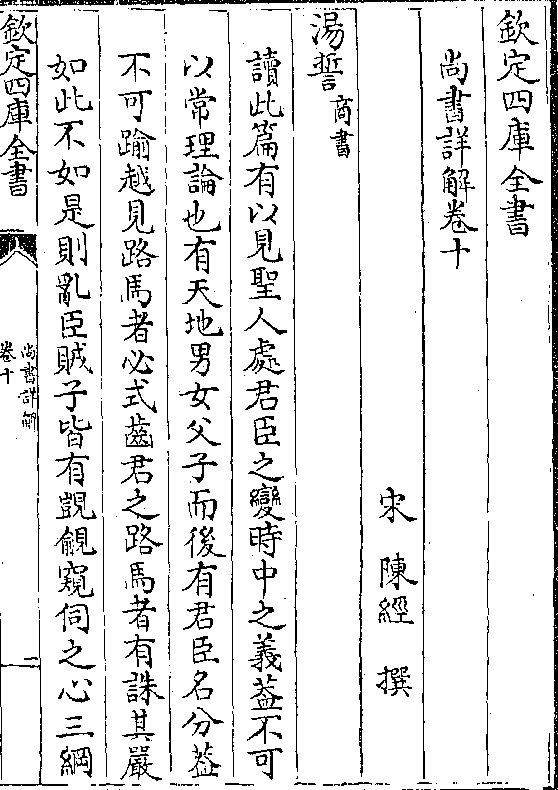 欽定四庫全書
尚書詳解卷十
宋 陳經 撰
湯誓商書
讀此篇有以見聖人處君臣之變時中之義葢不可
以常理論也有天地男女父子而後有君臣名分葢
不可踰越見路馬者必式齒君之路馬者有誅其嚴
如此不如是則亂臣賊子皆有覬覦窺伺之心三綱
欽定四庫全書
尚書詳解
卷十
一